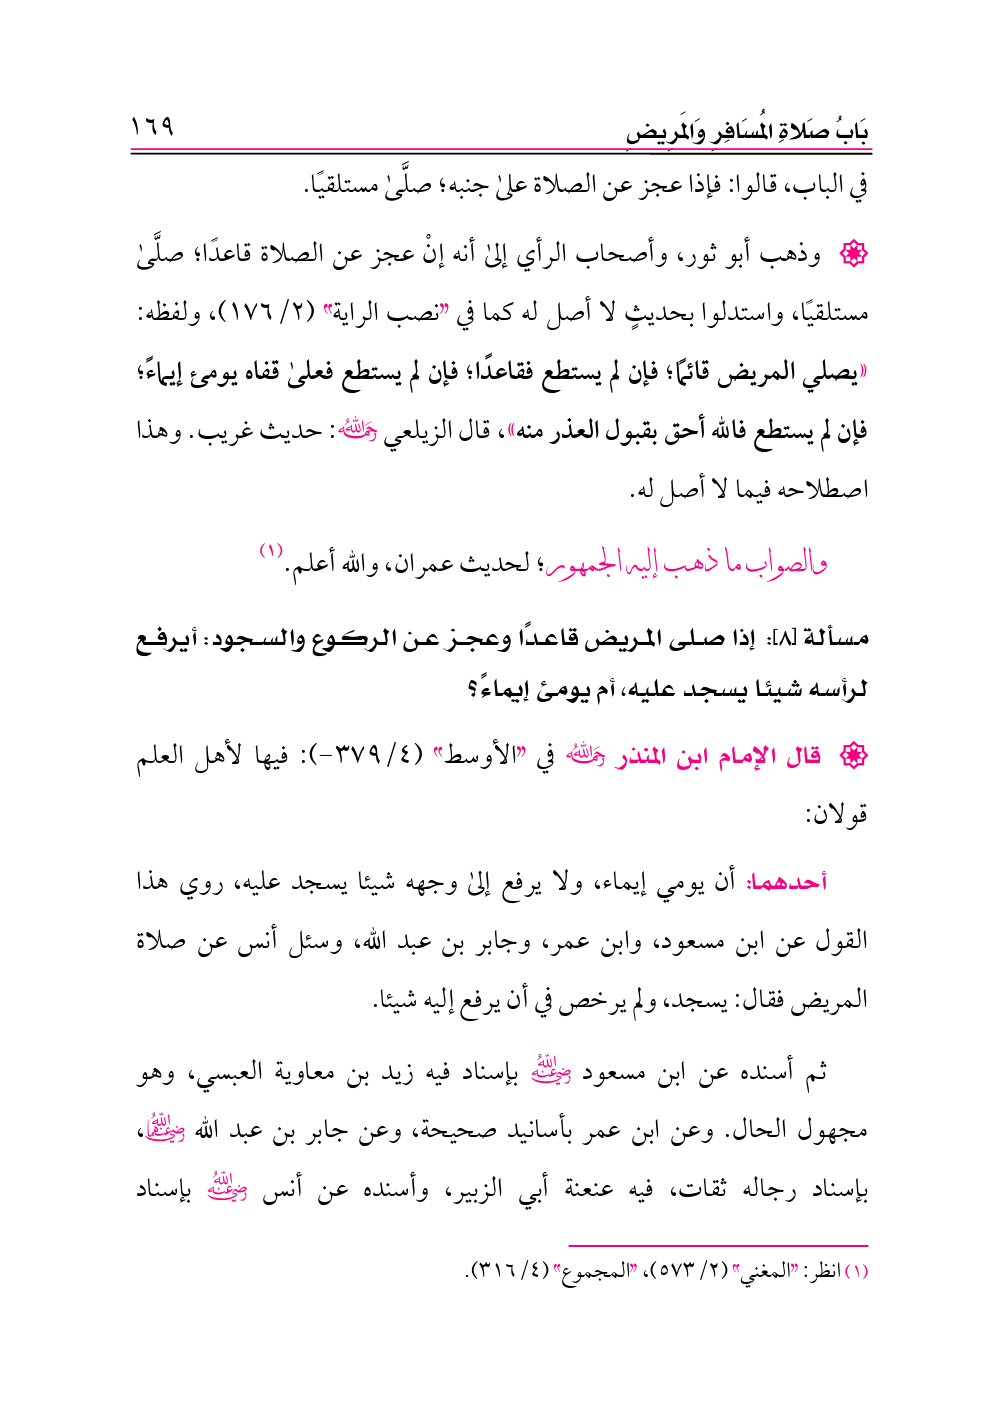 بَابُ صَلاةِ المُسَافِرِ وَالمَرِيضِ ١٦٩
في الباب، قالوا: فإذا عجز عن الصلاة علىٰ جنبه؛ صلَّىٰ مستلقيًا.
وذهب أبو ثور، وأصحاب الرأي إلىٰ أنه إنْ عجز عن الصلاة قاعدًا؛ صلَّىٰ
مستلقيًا، واستدلوا بحديثٍ لا أصل له كما في "نصب الراية" (٢/ ١٧٦)، ولفظه:
«يصلي المريض قائمًا؛ فإن لم يستطع فقاعدًا؛ فإن لم يستطع فعلىٰ قفاه يومئ إيماءً؛
فإن لم يستطع فالله أحق بقبول العذر منه»، قال الزيلعي رحمه الله: حديث غريب. وهذا
اصطلاحه فيما لا أصل له.
والصواب ما ذهب إليه الجمهور؛ لحديث عمران، والله أعلم.(١)
مسألة [٨]: إذا صلى المريض قاعدًا وعجز عن الركوع والسجود: أيرفع
لرأسه شيئا يسجد عليه، أم يومئ إيماءً؟
قال الإمام ابن المنذر رحمه الله في "الأوسط" (٤/ ٣٧٩-): فيها لأهل العلم
قولان:
أحدهما: أن يومي إيماء، ولا يرفع إلىٰ وجهه شيئا يسجد عليه، روي هذا
القول عن ابن مسعود، وابن عمر، وجابر بن عبد الله، وسئل أنس عن صلاة
المريض فقال: يسجد، ولم يرخص في أن يرفع إليه شيئا.
ثم أسنده عن ابن مسعود رضي الله عنه بإسناد فيه زيد بن معاوية العبسي، وهو
مجهول الحال. وعن ابن عمر بأسانيد صحيحة، وعن جابر بن عبد الله رضي الله عنهما،
بإسناد رجاله ثقات، فيه عنعنة أبي الزبير، وأسنده عن أنس رضي الله عنه بإسناد
(١) انظر: "المغني" (٢/ ٥٧٣)، "المجموع" (٤/ ٣١٦).